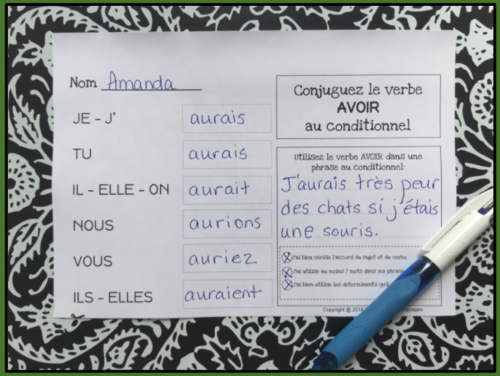 Nom Amanda
JE - J' aurais
TU aurais
IL - ELLE - ON aurait
NOUS aurions
VOUS auriez
ILS - ELLES auraient
Conjuguez le verbe
AVOIR
au conditionnel
Utilisez le verbe AVOIR dans une
phrase au conditionnel:
J'aurais très peur
des chats si j'étais
une souris.
J'ai bien vérifié l'accord du sujet et du verbe.
J'ai utilisé au moins 7 mots dans ma phrase.
J'ai bien utilisé les déterminants
Copyright © 201